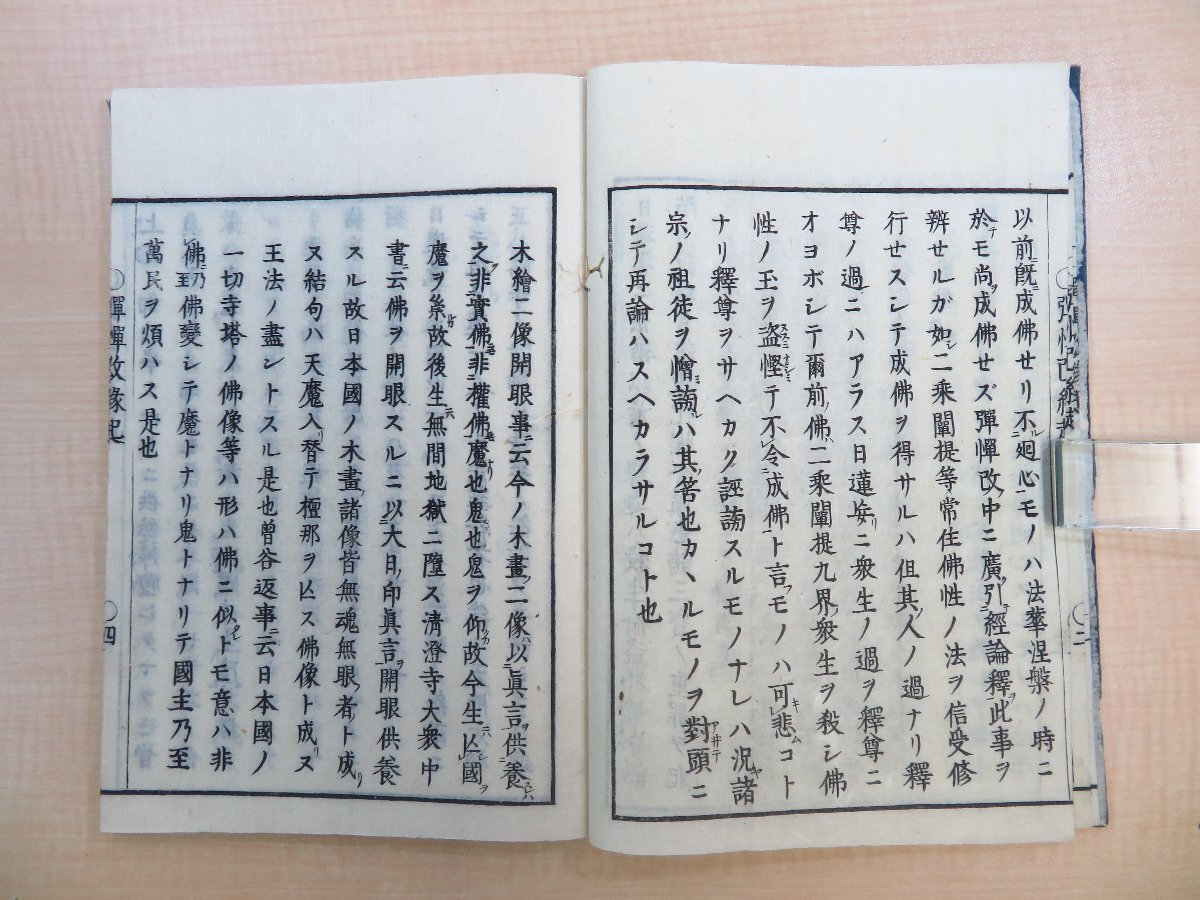 以前既成佛セリ不廻心モノハ法華涅槃ノ時ニ
於テモ尚成佛セズ彈憚改中ニ廣引經論釋此事ヲ
辨セルガ如シ二乘闡提等常住佛性ノ法ヲ信受修
行セスシテ成佛ヲ得サルハ但其人ノ過ナリ釋
尊ノ過ニハアラス日蓮妄リニ衆生ノ過ヲ釋尊ニ
オヨボシテ爾前ノ佛ハ二乘闡提九界ノ衆生ヲ殺シ佛
性ノ玉ヲ盜慳テ不令成佛ト言フモノハ可悲コト
ナリ釋尊ヲサヘカク誣謗スルモノナレハ況諸
宗ノ祖徒ヲ憎謗ルハ其筈也カヽルモノヲ對頭ニ
シテ再論ハスヘカラサルコト也
木繪二像開眼事ニ云今ノ木畫ノ二像以眞言ヲ供養スレハ
之ヲ非實佛ニモ非權佛ニモ魔也鬼也鬼ヲ仰故今生ニハ亡シ國ヲ
魔ヲ崇故後生ニハ無間地獄ニ墮ス清澄寺大衆中
書ニ云佛ヲ開眼スルニ以大日ノ印眞言ヲ開眼供養
スル故日本國ノ木畫ノ諸像皆無魂無眼ノ者ト成リ
ヌ結句ハ天魔入リ替テ檀那ヲ亡ス佛像ト成リヌ
王法ノ盡ントスル是也曾谷返事ニ云日本國ノ
一切寺塔ノ佛像等ハ形ハ佛ニ似レトモ意ハ非
佛ニ乃至佛變シテ魔トナリ鬼トナリテ國主乃至
萬民ヲ煩ハス是也
彈憚改縁起
四